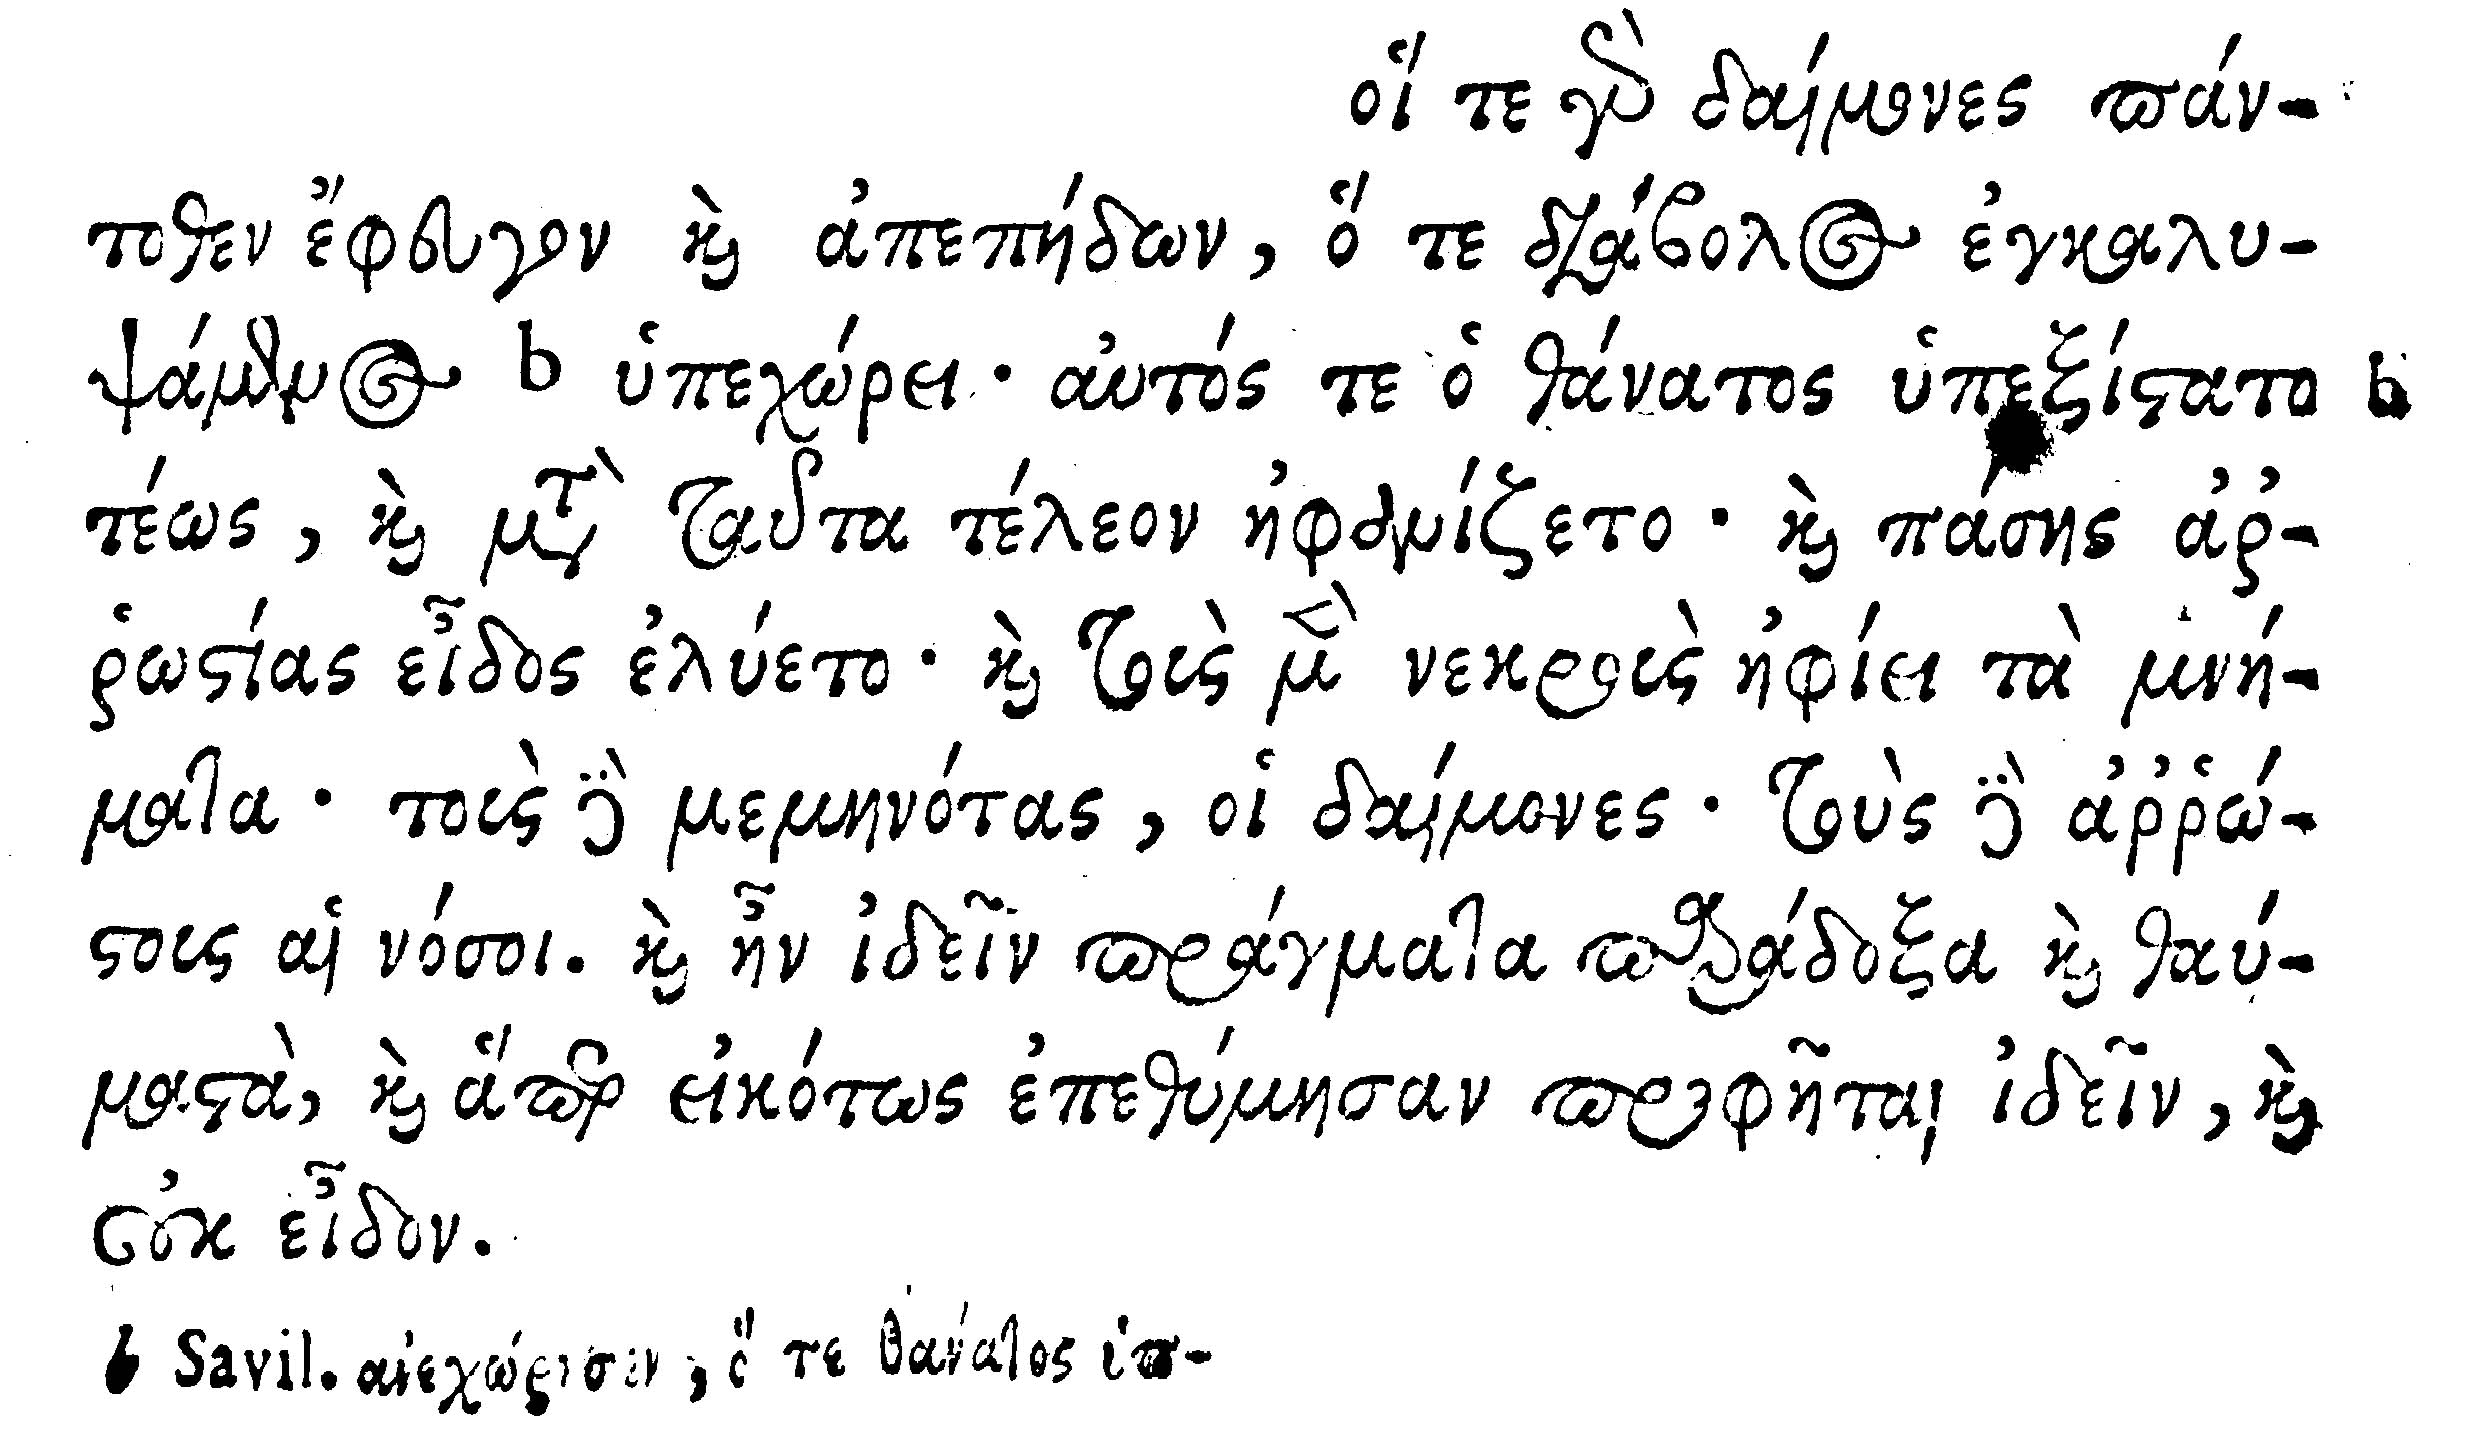 οἵ τε γὰρ δαίμονες πάν-
τοθεν ἔφευγον καὶ ἀπεπήδων, ὅ τε διάβολος ἐγκαλυ-
ψάμενος b ὑπεχώρει· αὐτός τε ὁ θάνατος ὑπεξίστατο b
τέως, καὶ μετὰ ταῦτα τέλεον ἠφανίζετο· καὶ πάσης ἀῤ-
ῥωστίας εἶδος ἐλύετο· καὶ τοὶς μὲν νεκροὶς ἠφίει τὰ μνή-
ματα· τοὶς δὲ μεμηνότας, οἱ δαίμονες· τοὺς δὲ ἀῤῥώ-
στοις αἱ νόσοι. καὶ ἦν ἰδεῖν πράγματα παράδοξα καὶ θαύ-
μαστὰ, καὶ ἅπερ εἰκότως ἐπεθύμησαν προφῆται ἰδεῖν, καὶ
οὐκ εἶδον.
b Savil. ἀνεχώρισεν, ὅ τε θάνατος ὑπ-